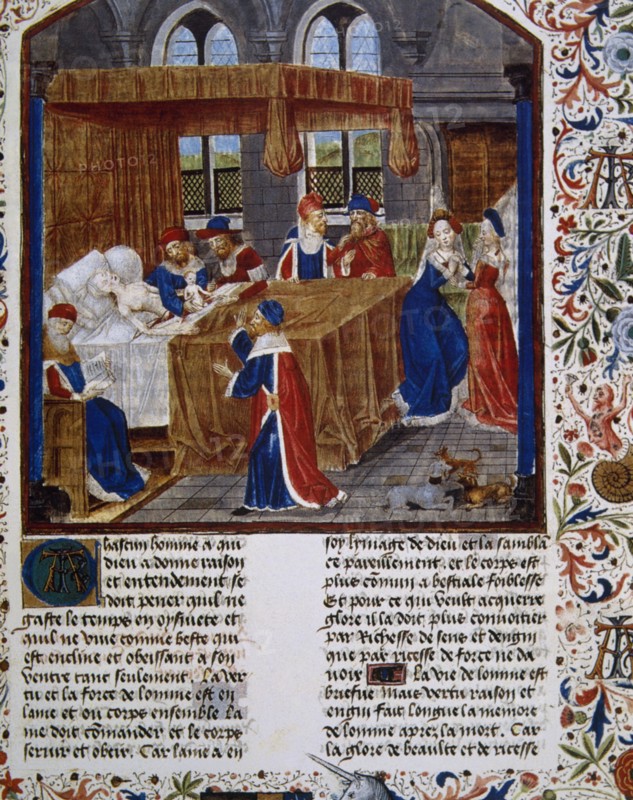 PHOTO12
hascun homme a qui
dieu a donne raison
et entendement se
doit pener quil ne
gaste le temps en oysiuete et
quil ne viue comme beste qui
est encline et obeissant a son
ventre tant seulement. La ver
tu et la force de lomme est en
lame et ou corps ensemble La
me doit cōmander et le corps
seruir et obeir. Car lame a en
soy lymage de dieu et la sambla
ce pareillement. et le corps est
plus cōmun a bestiale foiblesse
Et pour ce qui veult acquerre
glore il la doit plus conuoitier
par Richesse de sens et dengin
que par ricesse de force ne da
uoir La vie de lomme est
briefue mais vertu raison et
engin fait longue la memore
de lomme aprez la mort. Car
la glore de beaulte et de ricesse